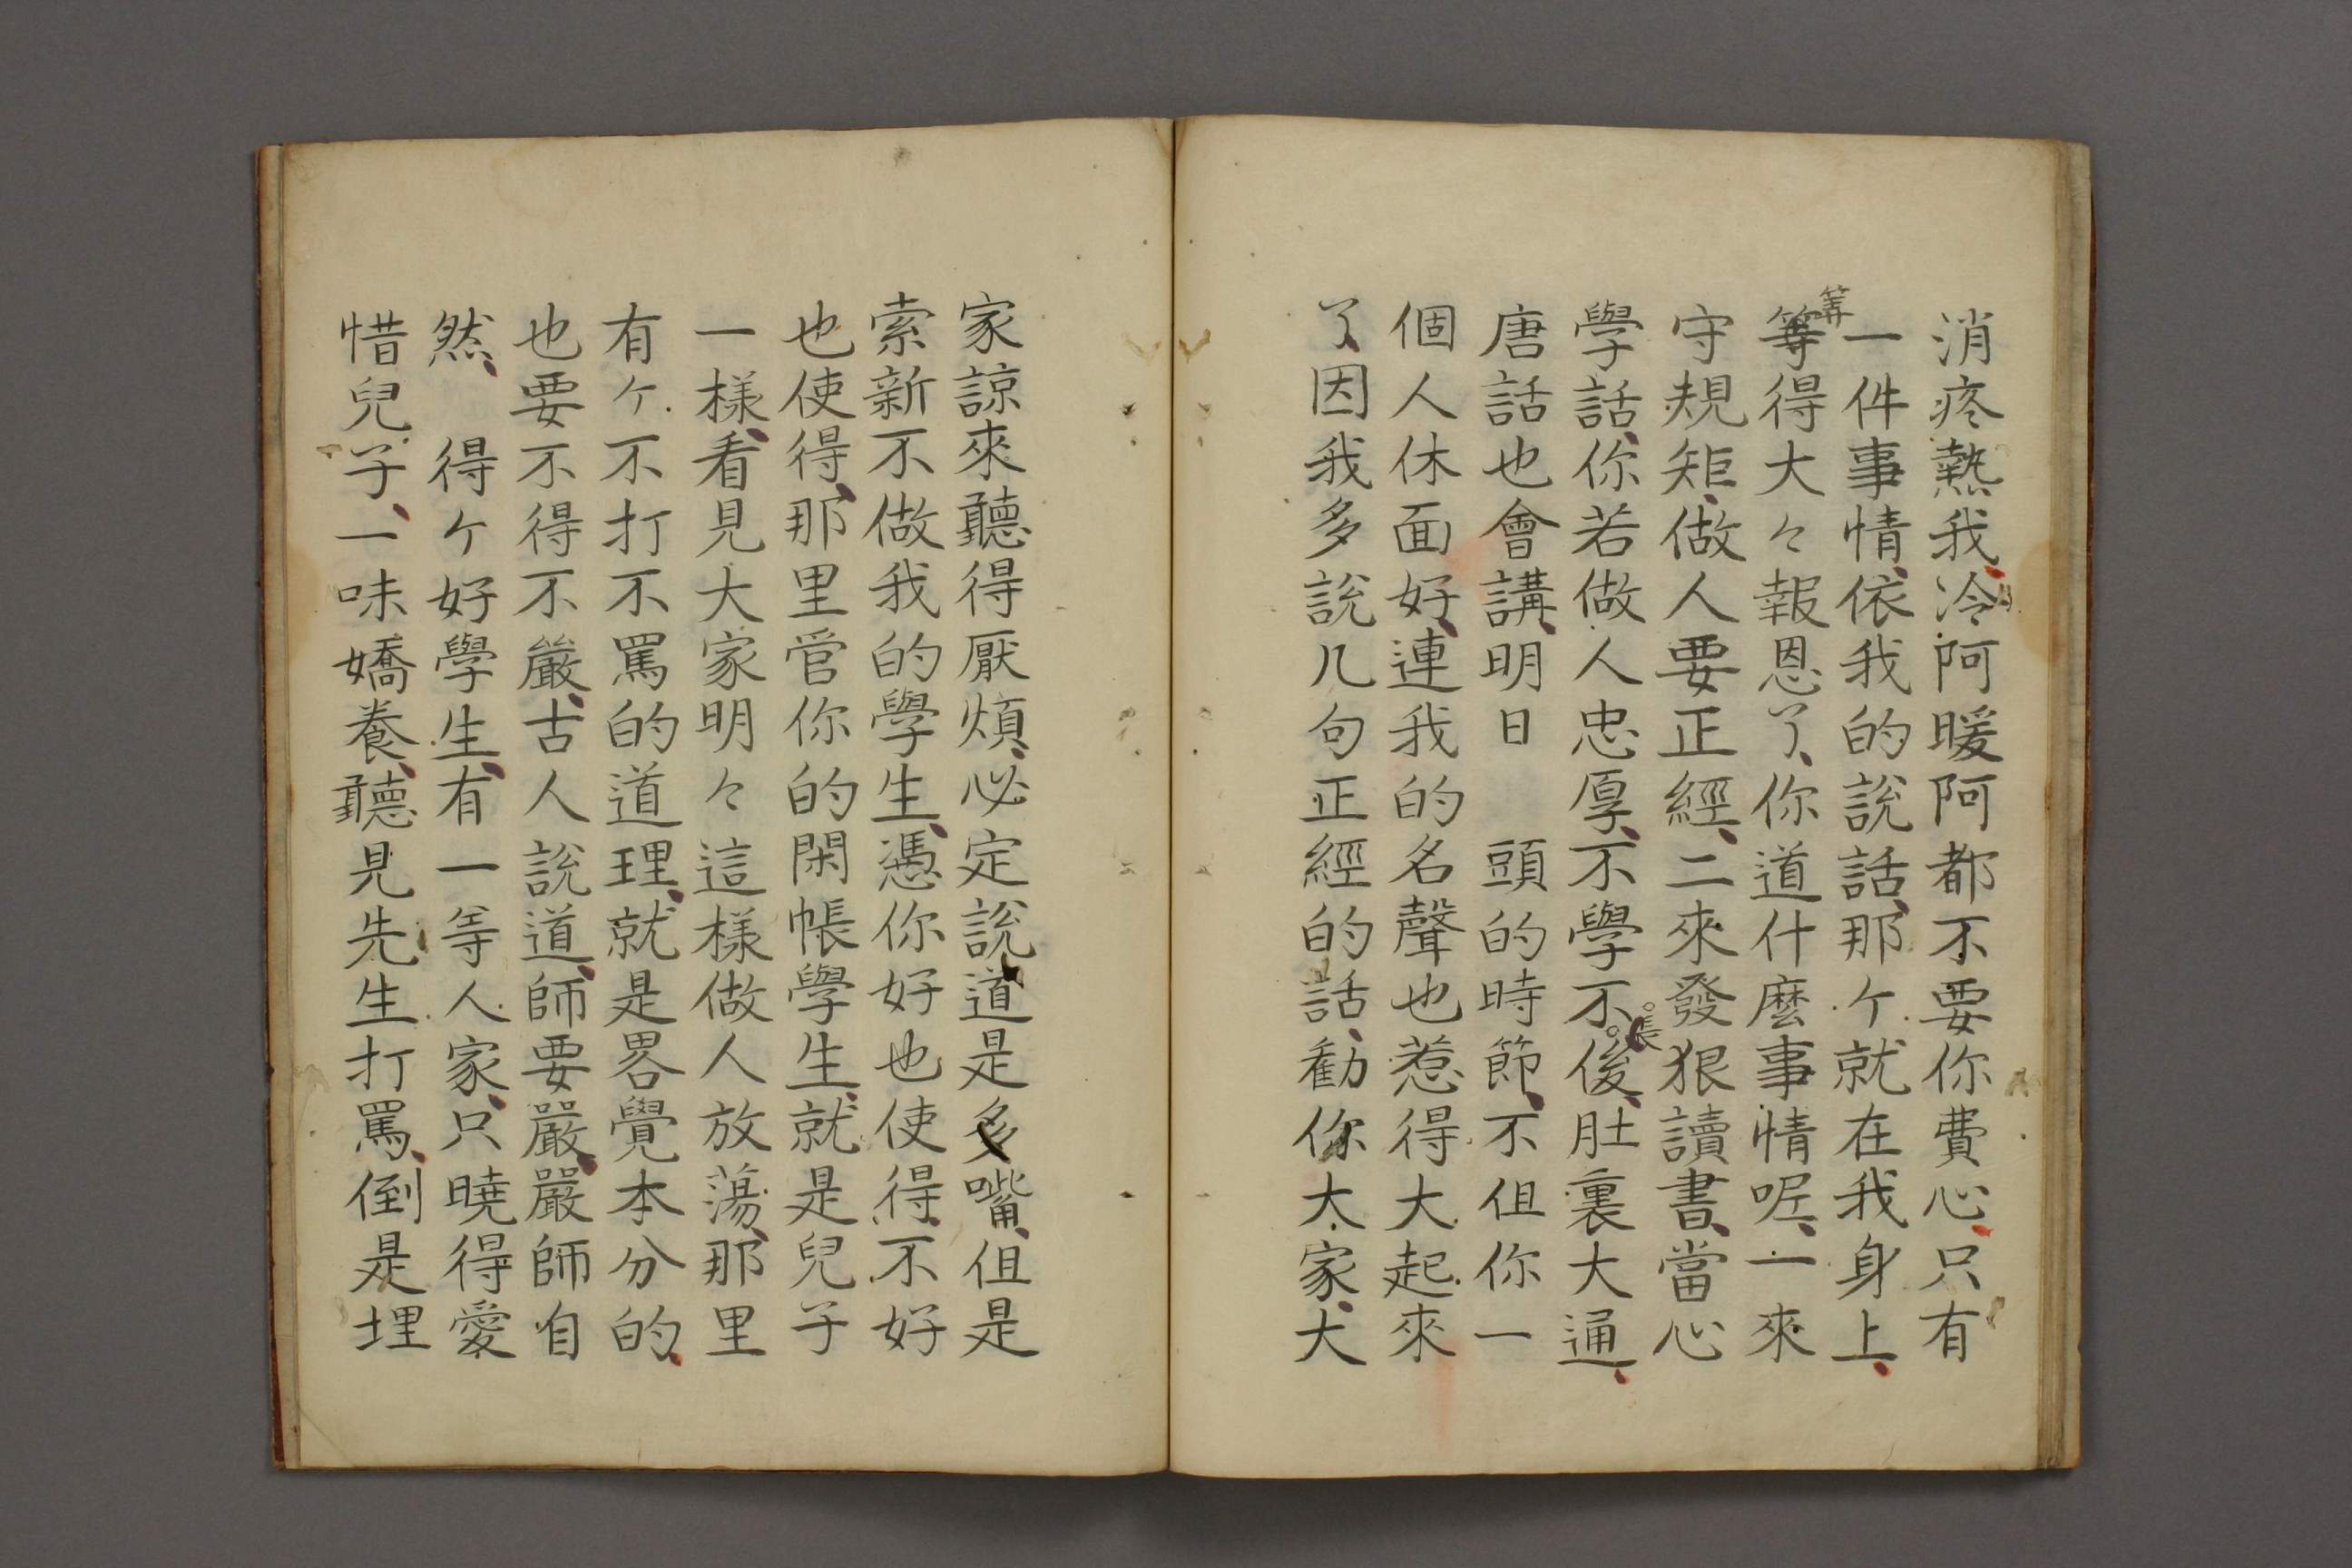 消疼熱我、冷阿暖阿都不要你費心、只有
一件事情、依我的說話、那ケ就在我身上、
筭
等得大々報恩了、你道什麼事情呢、一來
守規矩、做人要正經、二來發狠讀書、當心
學話、你若做人忠厚、不學不俊、肚裏大通、
長
唐話也會講、明日 頭的時節、不但你一
個人休面好、連我的名聲也惹得大起來
了、因我多說几句正經的話、勸你大家、大
家諒來聽得厭煩、必定說道是多嘴、但是
索新不做我的學生、憑你好也使得、不好
也使得、那里管你的閑帳學生、就是兒子
一樣、看見大家明々這樣做人放蕩、那里
有ケ不打不罵的道理、就是畧覺本分的、
也要不得不嚴、古人說道、師要嚴、嚴師自
然、 得ケ好學生、有一等人家、只曉得愛
惜兒子、一味嬌養、聽見先生打罵、倒是埋